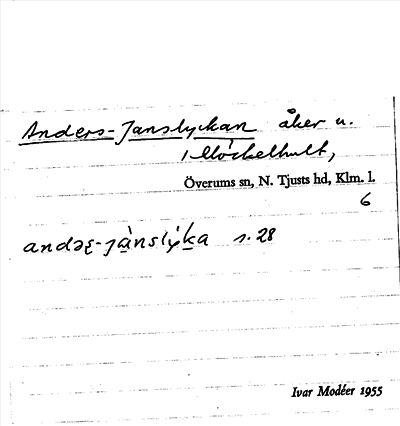 Anders-Janslyckan åker u.
1 Möckelhult,
Överums sn, N. Tjusts hd, Klm. l.
6
s. 28
Ivar Modéer 1955